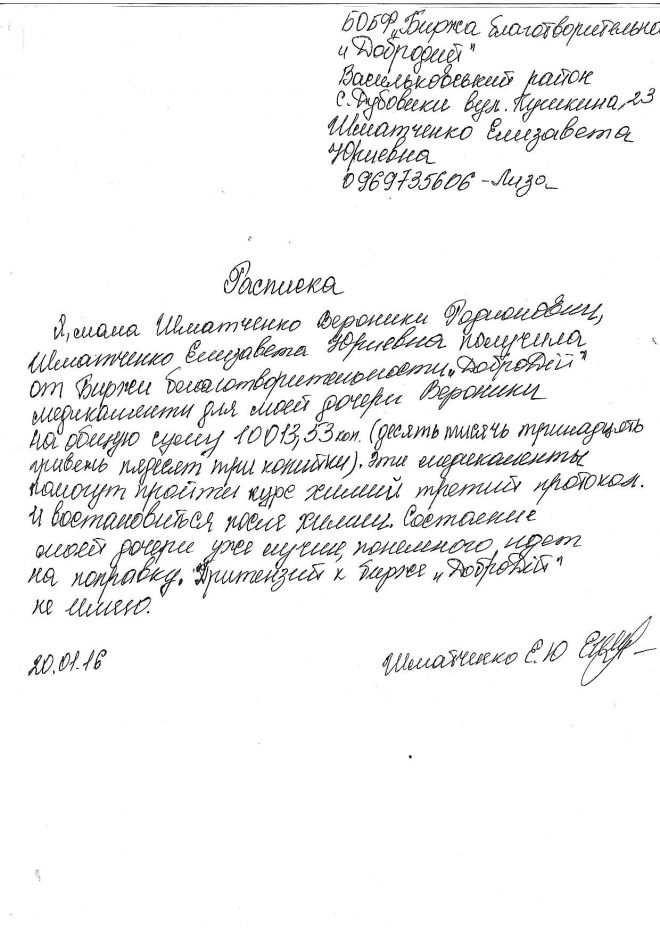 БОБФ „Биржа благотворительно
и „Добродий"
Васильковський район
с. Дубовики вул. Пушкина, 23
Шматченко Елизавета
Юриевна
0969735606 - Лиза
Расписка
Я, мама Шматченко Вероники Родионовны,
Шматченко Елизавета Юриевна получила
от Биржи благотворительности „ДоброДій"
медикаменти для моей дочери Вероники
на общую суму 10013,53 коп. (десять тисячь тринадцать
гривень пядесят три копийки). Эти медикаменты
помогут пройти курс химий третий протокол.
и востановиться после химии. Состоение
моей дочери уже лучше, понемного, идет
на поправку. Притензий к бирже „ДоброДій"
не имею.
20.01.16
Шматченко Е.Ю